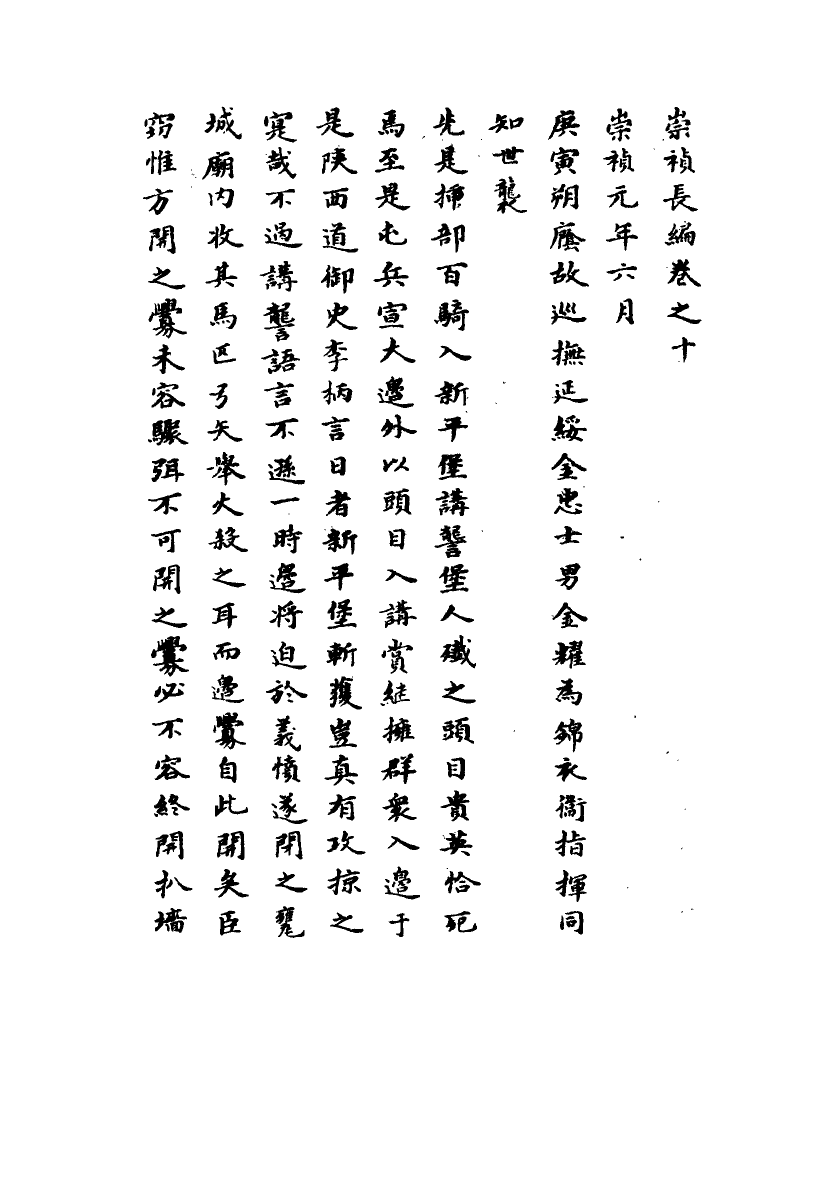 崇禎長編卷之十
崇禎元年六月
庚寅朔廕故巡撫延綏金忠士男金耀為錦衣衞指揮同
知世襲
先是揷部百騎入新平堡講讋堡人殲之頭目貴英恰死
馬至是屯兵宣大邊外以頭目入講賞繼擁群衆入邊于
是陝西道御史李柄言日者新平堡斬獲豈真有攻掠之
寔哉不過講讋語言不遜一時邊将迫於義憤遂閉之甕
城廟内收其馬匹弓矢舉火殺之耳而邊釁自此開矣臣
竊惟方開之釁未容驟弭不可開之釁必不容終開扒墻